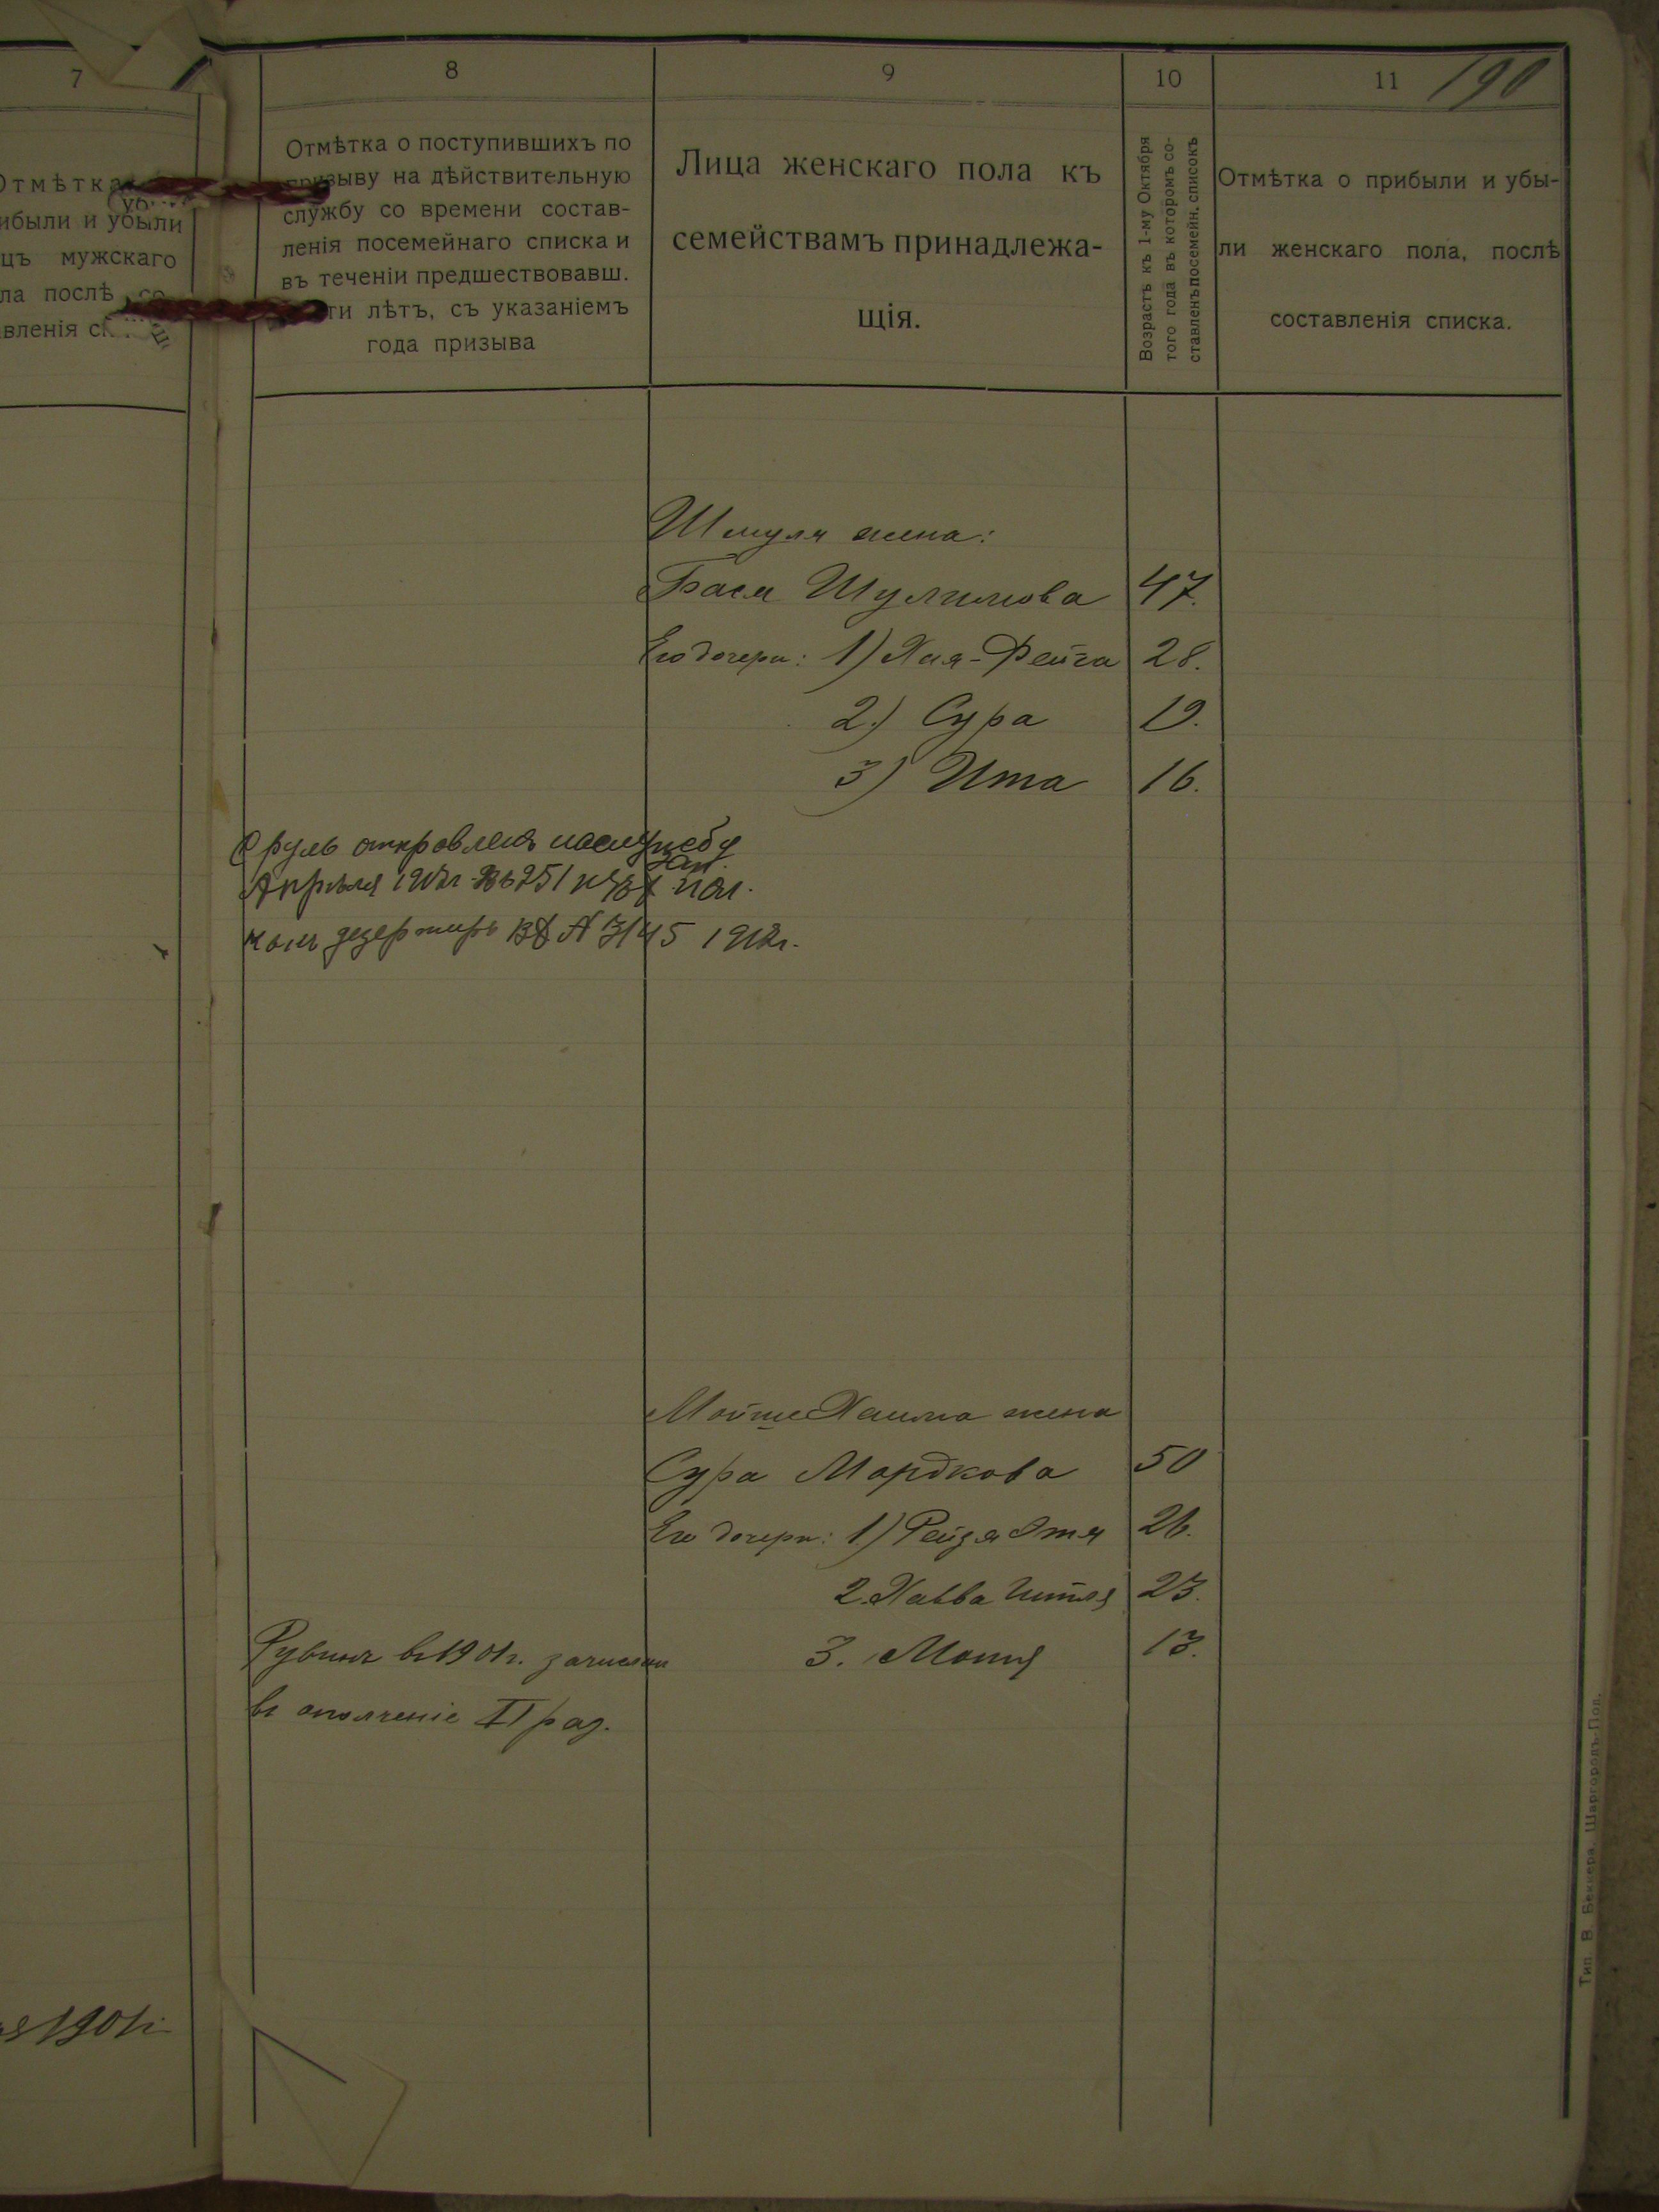 7
8
9
10
11
190
Отмѣтка
ибыли и убыли
цъ мужскаго
ла послѣ со
вленія
Отмѣтка о поступившихъ по
призыву на дѣйствительную
службу со времени состав-
ленія посемейнаго списка и
въ теченіи предшествовавш.
ти лѣтъ, съ указаніемъ
года призыва
Лица женскаго пола къ
семействамъ принадлежа-
щія.
Возрастъ къ 1-му Октября
того года въ которомъ со-
ставленъ посемейн. списокъ
Отмѣтка о прибыли и убы-
ли женскаго пола, послѣ
составленія списка.
Шмуля жена:
Бася Шулимова 47.
Его дочери: 1) Хая-Фейга 28.
2.) Сура 19.
3) Ита 16.
Сруль отправленъ на службу
Апрѣля въ 251 пол.
какъ дезертиръ № 3145 1912г.
Мойше Хаима жена
Сура Мордкова 50
Его дочери: 1.) Рейзя Этя 26.
2. Хавва 23.
3. 13.
Рувинъ въ 1901г. зачислен
въ ополченіе II раз.
1901г.
Тип. В. Беккера, Шаргородъ-Под.